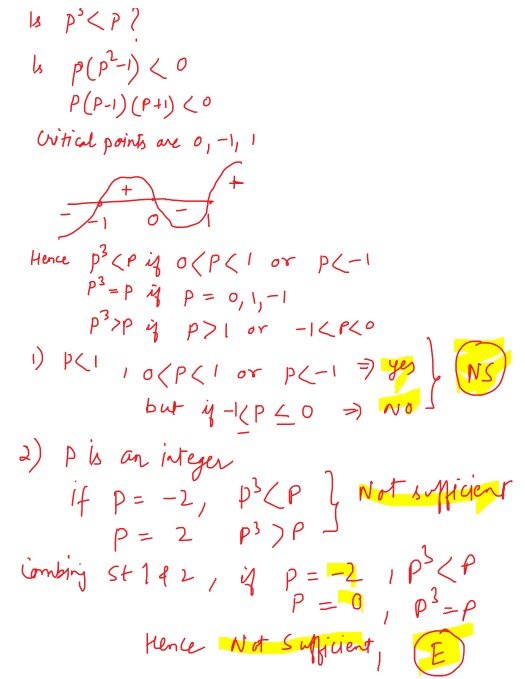 Is p³ < p ?
Is p(p²-1) < 0
P(P-1)(P+1) < 0
Critical points are 0, -1, 1
- + - +
-1 0 1
Hence p³<p if 0<P<1 or P<-1
p³=p if P = 0,1,-1
p³>p if P>1 or -1<P<0
1) P<1 , 0<P<1 or P<-1 ⇒ yes } NS
but if -1≤P≤0 ⇒ NO
2) P is an integer
if P = -2, p³<P } Not sufficient
P = 2 p³>P
Combing St 1 & 2, if P = -2 , P³<P
P = 0 , p³=P
Hence Not Sufficient, E